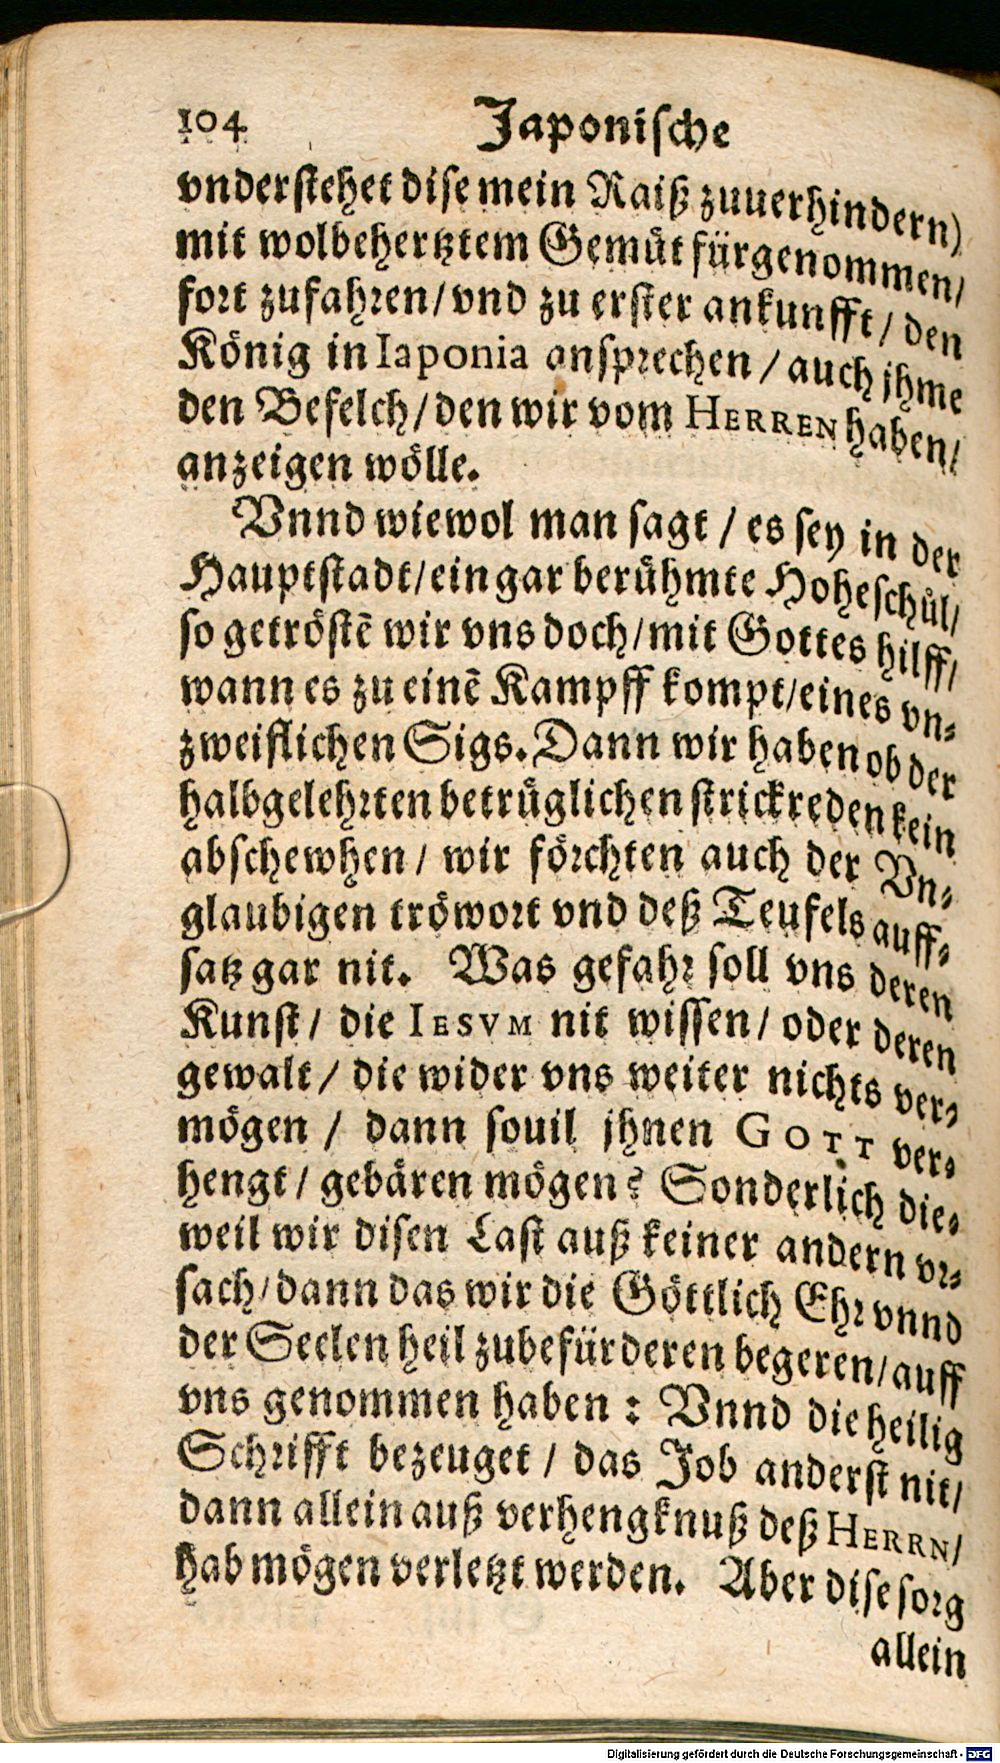 104 Japonische
vnderstehet dise mein Raiß zuuerhindern)
mit wolbehertztem Gemuͤt fürgenommen/
fort zufahren/ vnd zu erster ankunfft/ den
König in Iaponia ansprechen / auch jhme
den Befelch/ den wir vom HERREN haben/
anzeigen wölle.
Vnnd wiewol man sagt / es sey in der
Hauptstadt/ ein gar beruͤhmte Hoheschuͤl/
so getröstē wir vns doch/ mit Gottes hilff/
wann es zu einē Kampff kompt/ eines vn-
zweiflichen Sigs. Dann wir haben ob der
halbgelehrten betruͤglichen strickreden kein
abschewhen/ wir förchten auch der Vn-
glaubigen tröwort vnd deß Teufels auff-
satz gar nit. Was gefahr soll vns deren
Kunst/ die IESVM nit wissen/ oder deren
gewalt/ die wider vns weiter nichts ver-
mögen / dann souil jhnen GOTT ver-
hengt/ gebären mögen? Sonderlich die-
weil wir disen Last auß keiner andern vr-
sach/ dann das wir die Göttlich Ehr vnnd
der Seelen heil zubefürderen begeren/ auff
vns genommen haben : Vnnd die heilig
Schrifft bezeuget / das Job anderst nit/
dann allein auß verhengknuß deß HERRN/
hab mögen verletzt werden. Aber dise sorg
allein
Digitalisierung gefördert durch die Deutsche Forschungsgemeinschaft - DFG